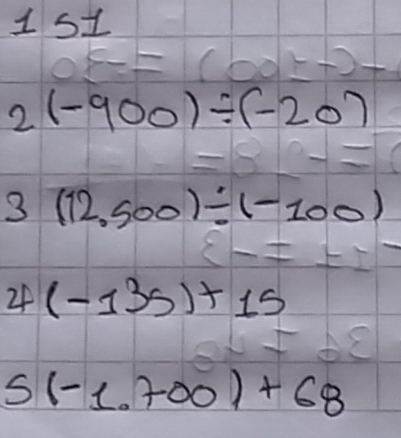 1 51
2 (-900)÷(-20)
3 (12.500)÷(-100)
4 (-135)+15
5 (-1.700)+68